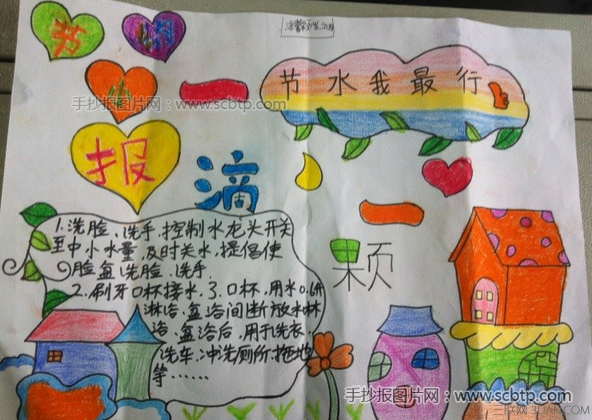 节 小
节水我最行
小
手抄报图片网：www.scbtp.com
一
报
滴
一
颗
1.洗脸、洗手.控制水龙头开关
至中小水量.及时关水.提倡使
脸盆洗脸、洗手.
2.刷牙口杯接水.3.口杯.用水0.6升
淋浴.盆浴间断放水淋
浴、盆浴后.用于洗衣.
洗车.冲洗厕所.拖地
等……
手抄报图片网：www.scbtp.com
三联网 3LIAN.COM